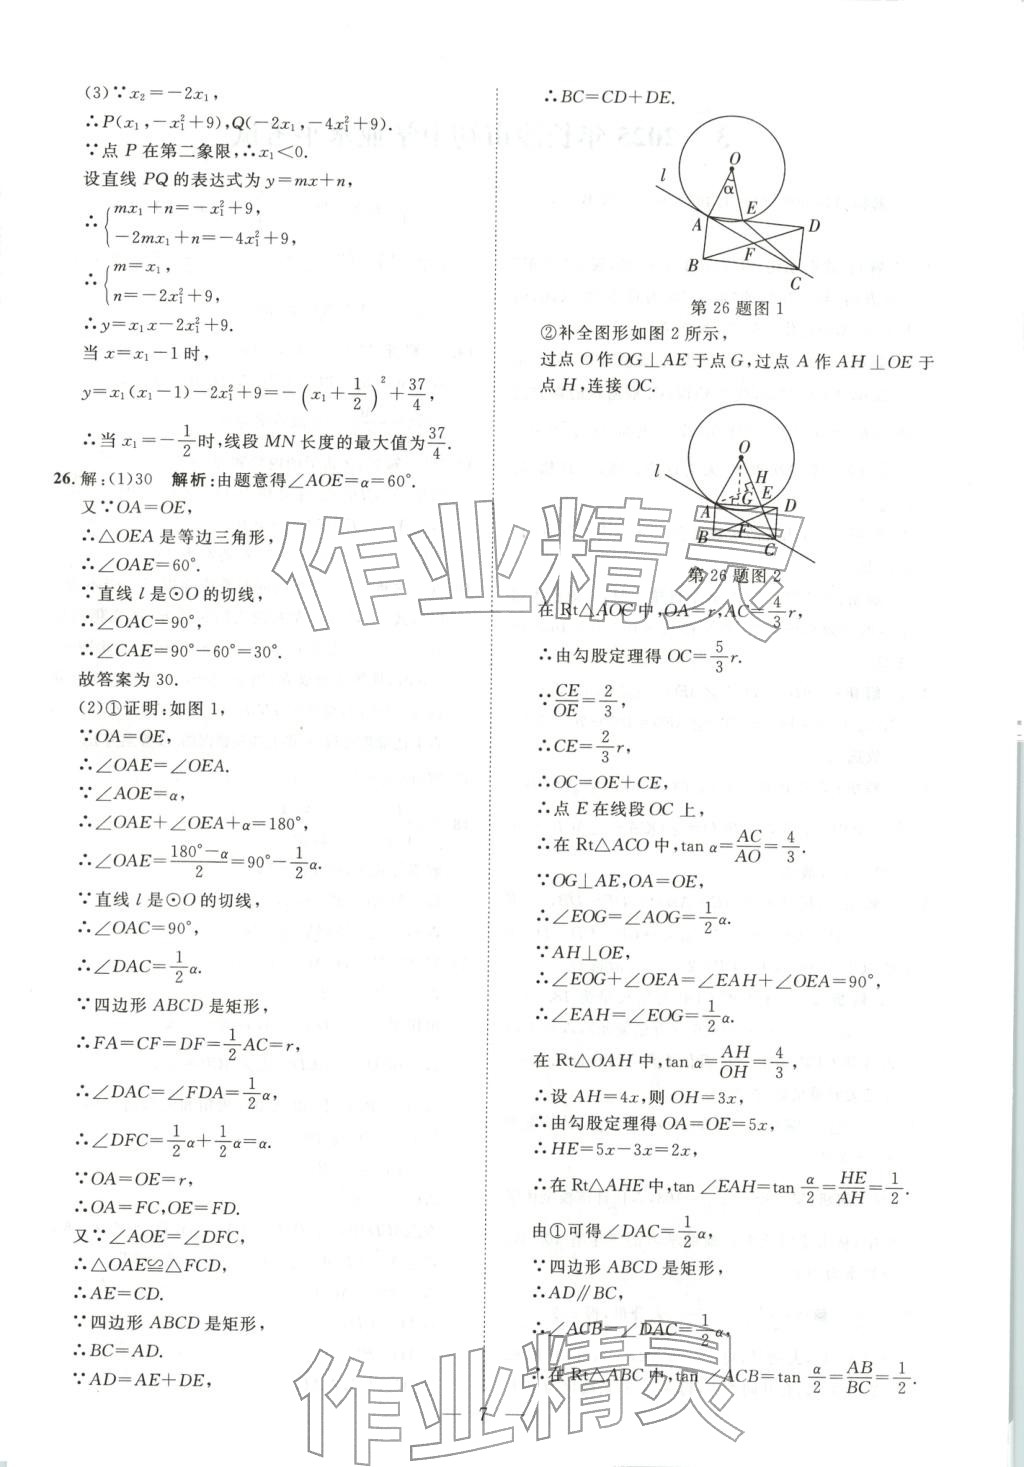 (3)∵x₂=-2x₁,
∴P(x₁,-x₁²+9),Q(-2x₁,-4x₁²+9).
∵点 P 在第二象限,∴x₁<0.
设直线 PQ 的表达式为 y=mx+n,
∴{mx₁+n=-x₁²+9,
-2mx₁+n=-4x₁²+9,
∴{m=x₁,
n=-2x₁²+9,
∴y=x₁x-2x₁²+9.
当 x=x₁-1 时,
y=x₁(x₁-1)-2x₁²+9=-(x₁+1/2)²+37/4,
∴当 x₁=-1/2时,线段 MN 长度的最大值为37/4.
26.解:(1)30 解析:由题意得∠AOE=α=60°.
又∵OA=OE,
∴△OEA 是等边三角形,
∴∠OAE=60°.
∵直线 l 是⊙O 的切线,
∴∠OAC=90°,
∴∠CAE=90°-60°=30°.
故答案为 30.
(2)①证明:如图 1,
∵OA=OE,
∴∠OAE=∠OEA.
∵∠AOE=α,
∴∠OAE+∠OEA+α=180°,
∴∠OAE=(180°-α)/2=90°-1/2α.
∵直线 l 是⊙O 的切线,
∴∠OAC=90°,
∴∠DAC=1/2α.
∵四边形 ABCD 是矩形,
∴FA=CF=DF=1/2AC=r,
∴∠DAC=∠FDA=1/2α,
∴∠DFC=1/2α+1/2α=α.
∵OA=OE=r,
∴OA=FC,OE=FD.
又∵∠AOE=∠DFC,
∴△OAE≌△FCD,
∴AE=CD.
∵四边形 ABCD 是矩形,
∴BC=AD.
∵AD=AE+DE,
∴BC=CD+DE.
O
l
α
E
A
D
B
F
C
第 26 题图 1
②补全图形如图 2 所示,
过点 O 作 OG⊥AE 于点 G,过点 A 作 AH⊥OE 于
点 H,连接 OC.
O
l
H
E
G
A
D
B
F
C
第 26 题图 2
在 Rt△AOC 中,OA=r,AC=4/3r,
∴由勾股定理得 OC=5/3r.
∵CE/OE=2/3,
∴CE=2/3r,
∴OC=OE+CE,
∴点 E 在线段 OC 上,
∴在 Rt△ACO 中,tan α=AC/AO=4/3.
∵OG⊥AE,OA=OE,
∴∠EOG=∠AOG=1/2α.
∵AH⊥OE,
∴∠EOG+∠OEA=∠EAH+∠OEA=90°,
∴∠EAH=∠EOG=1/2α.
在 Rt△OAH 中,tan α=AH/OH=4/3,
∴设 AH=4x,则 OH=3x,
∴由勾股定理得 OA=OE=5x,
∴HE=5x-3x=2x,
∴在 Rt△AHE 中,tan ∠EAH=tan α/2=HE/AH=1/2.
由①可得∠DAC=1/2α,
∵四边形 ABCD 是矩形,
∴AD∥BC,
∴∠ACB=∠DAC=1/2α,
∴在 Rt△ABC 中,tan ∠ACB=tan α/2=AB/BC=1/2.
7
作业精灵
作业精灵